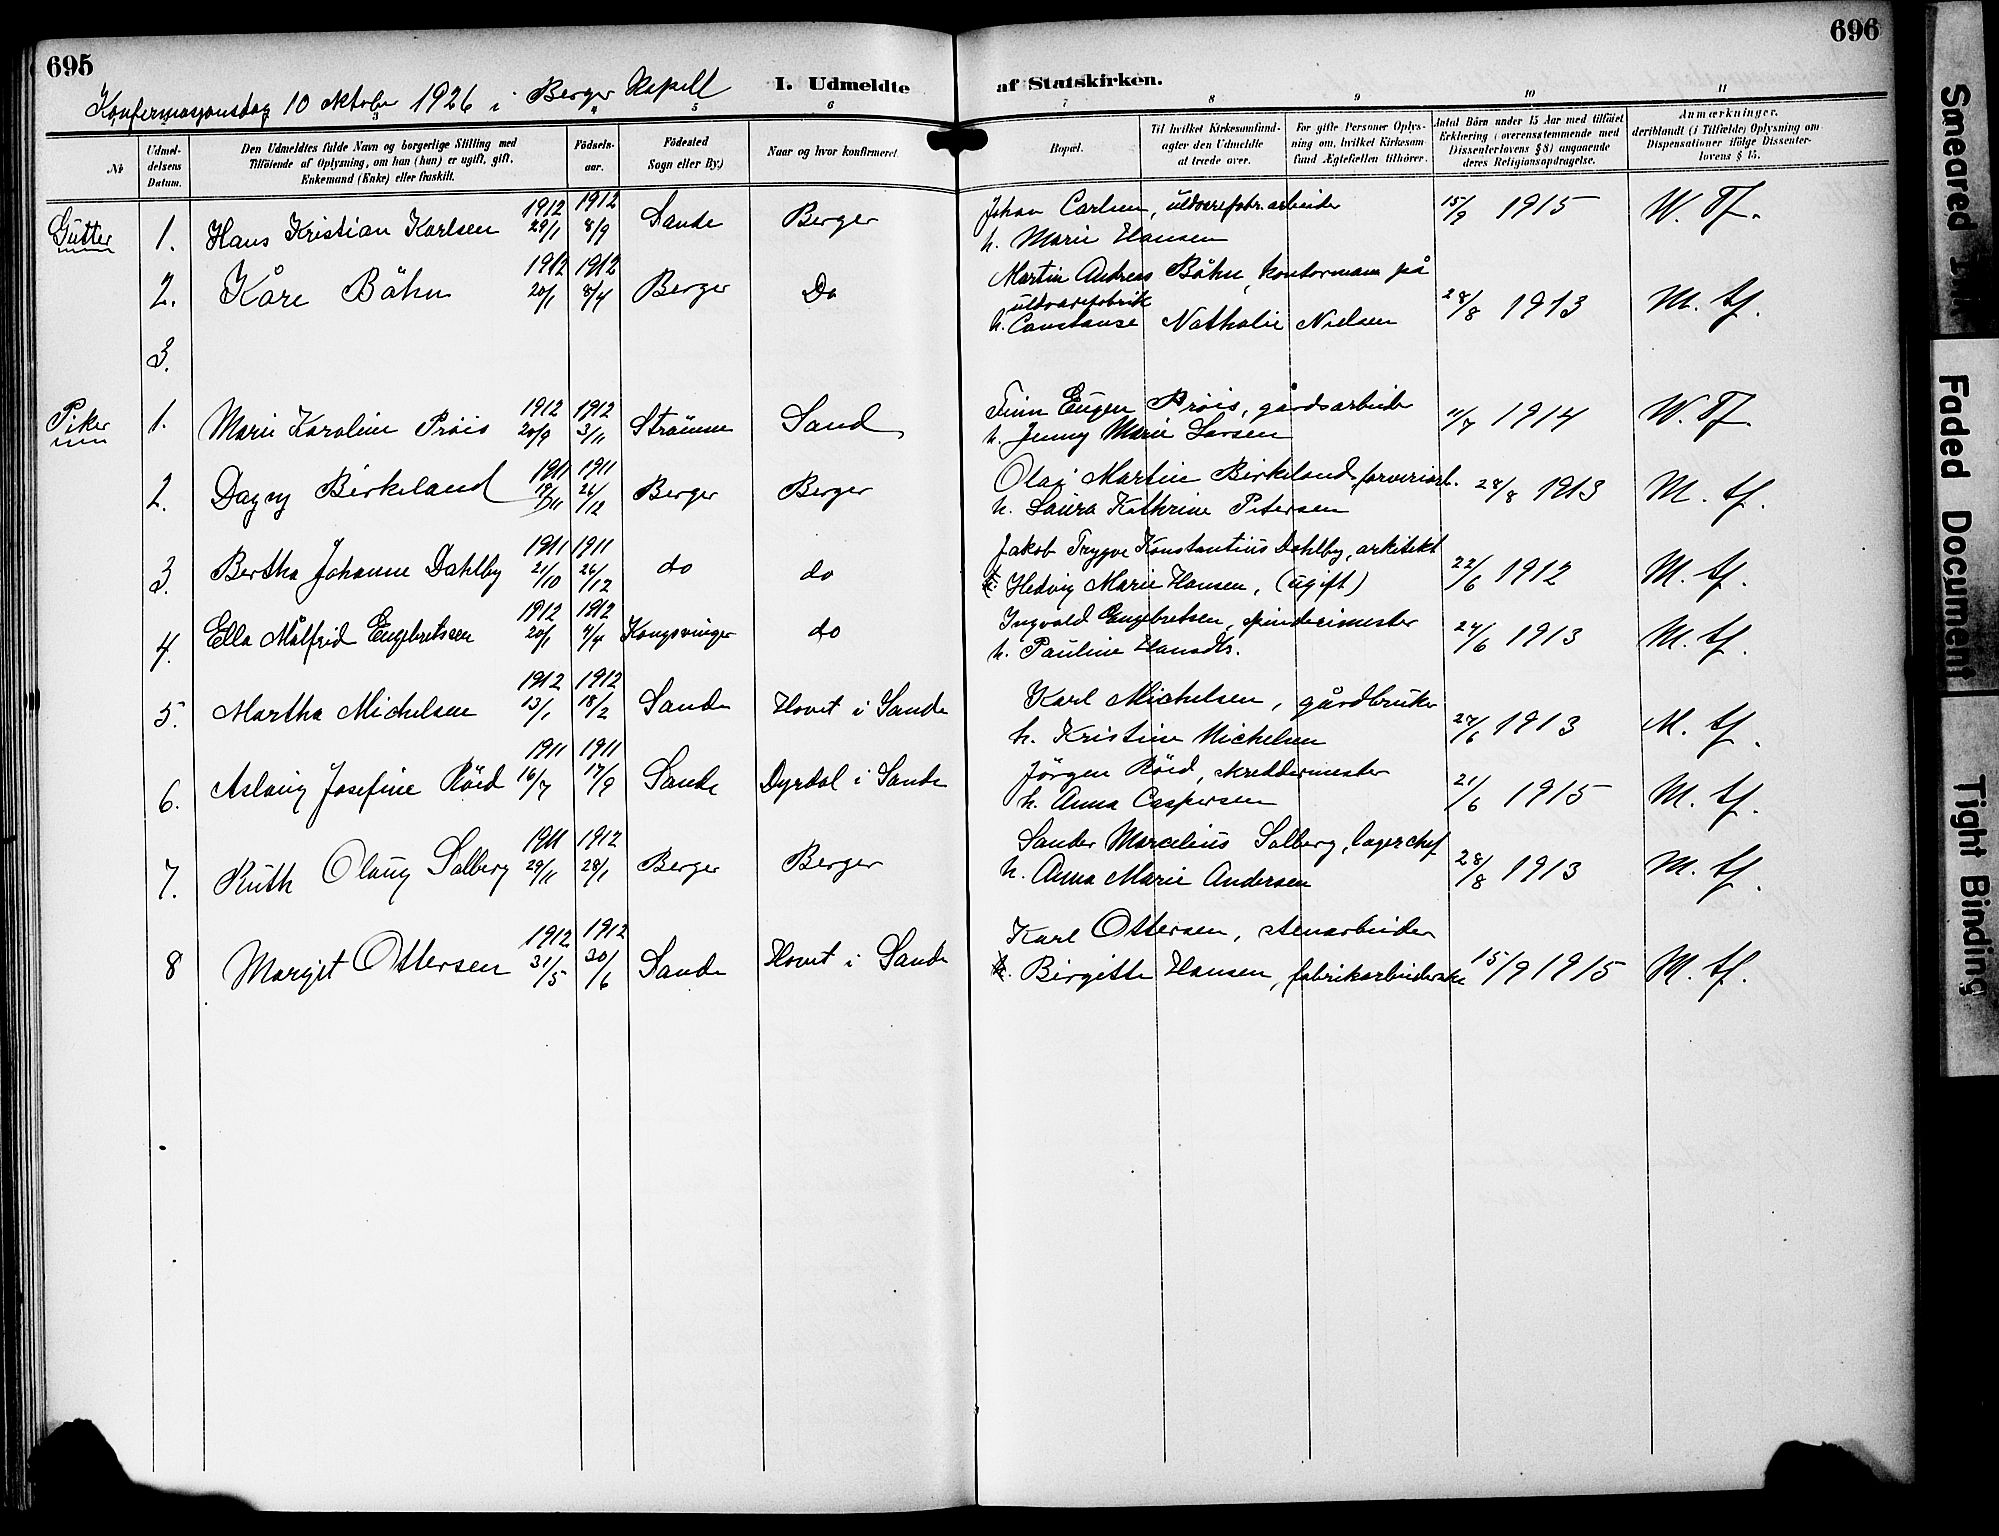 695
696
Konfirmasjonsdag 10 oktober 1926 i Berger Kapell
I. Udmeldte af Statskirken.
3 4 5 6 7 8 9 10 11
No
Udmel-
delsens
Datum.
Den Udmeldtes fulde Navn og borgerlige Stilling med
Tilföiende af Oplysning, om han (hun) er ugift, gift,
Enkemand (Enke) eller fraskilt.
Födsels-
aar.
Födested
Sogn eller By.)
Naar og hvor konfirmeret
Bopæl.
Til hvilket Kirkesamfund-
agter den Udmeldte
at træde over.
For gifte Personer Oplys-
ning om, hvilket Kirkesam-
fund Ægtefællen tilhörer.
Antal Börn under 15 Aar med tilföiet
Erklæring (overensstemmende med
Dissenterlovens § 8) angaaende
deres Religionsopdragelse.
Anmærkninger,
deriblandt (i Tilfælde) Oplysning om
Dispensationer ifölge Dissenter-
lovens § 15.
Gutter 1. Hans Kristian Karlsen 1912 29/1 1912 8/9 Sande Berger
Johan Carlsen, uldvarefabr.arbeider 15/9 1915 W. Tf.
h. Marie Hansen
2. Kåre Böhn 1912 20/1 1912 8/4 Berger Do
Martin Andreas Böhn, kontormann på
uldvarefabrik
h. Constanse Nathalie Nielsen 28/8 1913 M. tf.
3.
Piker 1. Marie Karoline Pröis 1912 20/9 1912 3/11 Strömm Sand
Finn Eugen Pröis, gårdsarbeider 11/7 1914 W. Tf.
h. Jenny Marie Larsen
2. Dagny Birkeland 1911 19/11 1911 26/12 Berger Berger
Olaf Martin Birkeland, farveriarb. 28/8 1913 M. tf.
h. Laura Kathrine Petersen
3. Bertha Johanne Dahlby 1911 21/10 1911 26/12 do do
Jakob Trygve Konstantius Dahlby, arkitekt
Hedvig Marie Hansen, (ugift) 22/6 1912 M. tf.
4. Ella Målfrid Engebretsen 1912 20/1 1912 4/4 Kongsvinger do
Ingvald Engebretsen, spinderimester 24/6 1913 M. tf.
h. Pauline Hansdtr.
5. Martha Michelsen 1912 13/1 1912 18/2 Sande Hovet i Sande
Karl Michelsen, gårdbruker
h. Kristine Michelsen 24/6 1913 M. tf.
6. Aslaug Josefine Röed 1911 16/7 1911 17/9 Sande Dyrdal i Sande
Jörgen Röed, skreddermester
h. Anna Caspersen 21/6 1915 M. tf.
7. Ruth Olaug Solberg 1911 29/11 1912 28/1 Berger Berger
Sander Marcelius Solberg, lagerchef
h. Anna Marie Andersen 28/8 1913 M. tf.
8 Margit Ottersen 1912 31/5 1912 30/6 Sande Hovet i Sande
Karl Ottersen, stenarbeider
Birgitte Hansen, fabrikarbeiderske 15/9 1915 M. tf.
Smeared
Faded Document
Tight Binding